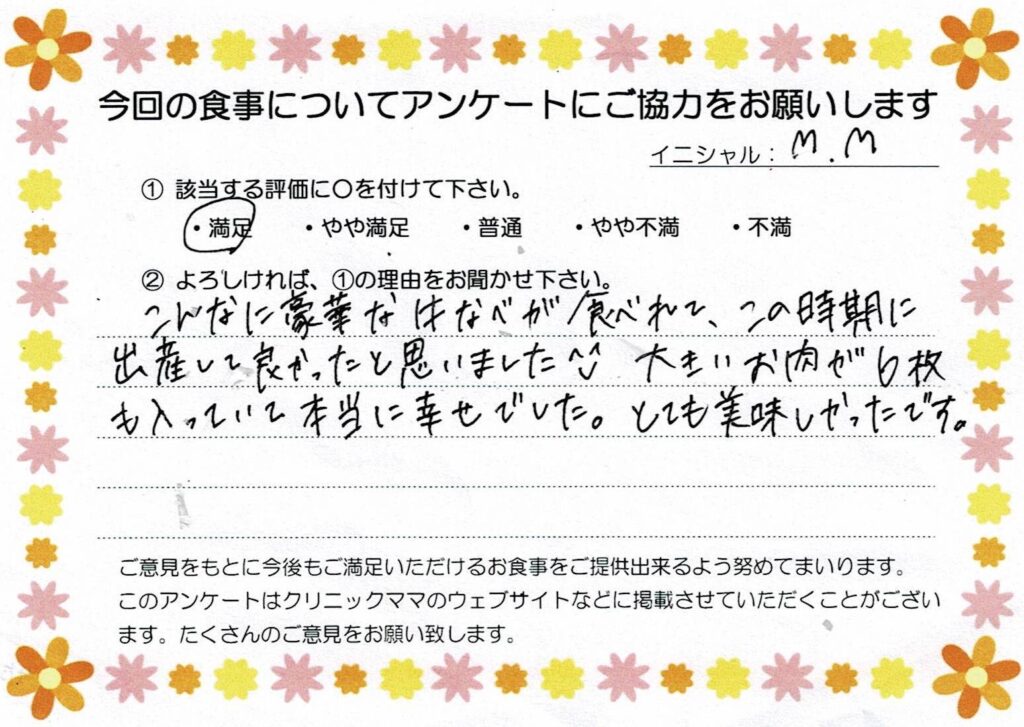 今回の食事についてアンケートにご協力をお願いします
イニシャル： M.M
① 該当する評価に〇を付けて下さい。
・満足 ・やや満足 ・普通 ・やや不満 ・不満
② よろしければ、①の理由をお聞かせ下さい。
こんなに豪華な牛なべが食べれて、この時期に
出産して良かったと思いました 大きいお肉が6枚
も入っていて本当に幸せでした。とても美味しかったです。
ご意見をもとに今後もご満足いただけるお食事をご提供出来るよう努めてまいります。
このアンケートはクリニックママのウェブサイトなどに掲載させていただくことがござい
ます。たくさんのご意見をお願い致します。